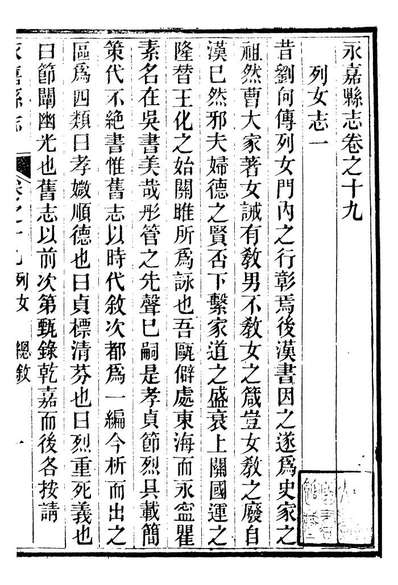 永嘉縣志卷之十九
列女志一
昔劉向傳列女門內之行彰焉後漢書因之遂爲史家之
祖然曹大家著女誡有敎男不敎女之箴豈女敎之廢自
漢已然邪夫婦德之賢否下繫家道之盛衰上關國運之
隆替王化之始關雎所爲詠也吾甌僻處東海而永寧瞿
素名在吳書美哉彤管之先聲已嗣是孝貞節烈具載簡
策代不絶書惟舊志以時代敘次都爲一編今析而出之
區爲四類曰孝媺順德也曰貞標清芬也曰烈重死義也
曰節闡幽光也舊志以前次第甄錄乾嘉而後各按請
永嘉縣志
卷之十九列女 總敘 一